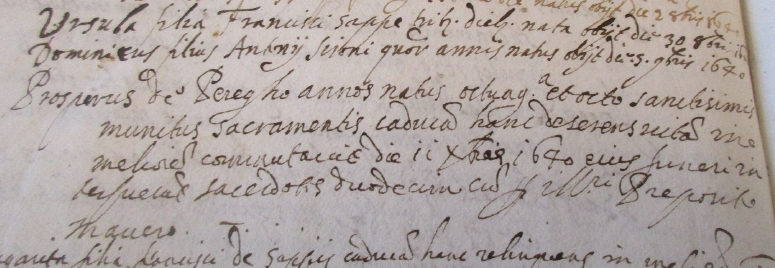 natus obijt die 2 9bris 1640
Ursula filia Francisci Sappe trib. dieb. nata obijt die 30 8bris
Dominicus filius Antonij Sironi quor annis natus obijt die 5. 9bris 1640
Prosperus de Peregho annos natus octuag.a et octo sanctissimis
munitus sacramentis caducã hanc deserens vitã in
meliorẽ comutavit die 11 Xbris 1640 eius funeri in
terfuerũt sacerdotes duodecim cũ Ill.ri Preposito
filia Francisci de Sappis caducã hanc relinquens in meliorẽ